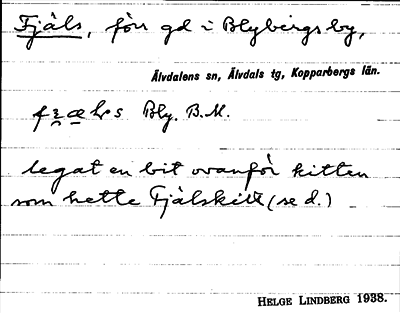 Fjäls, förr gd i Blybergs by,
Älvdalens sn, Älvdals tg, Kopparbergs län.
Bly. B.M.
legat en bit ovanför kitten
som hette Fjälskitt (se d.)
HELGE LINDBERG 1938.